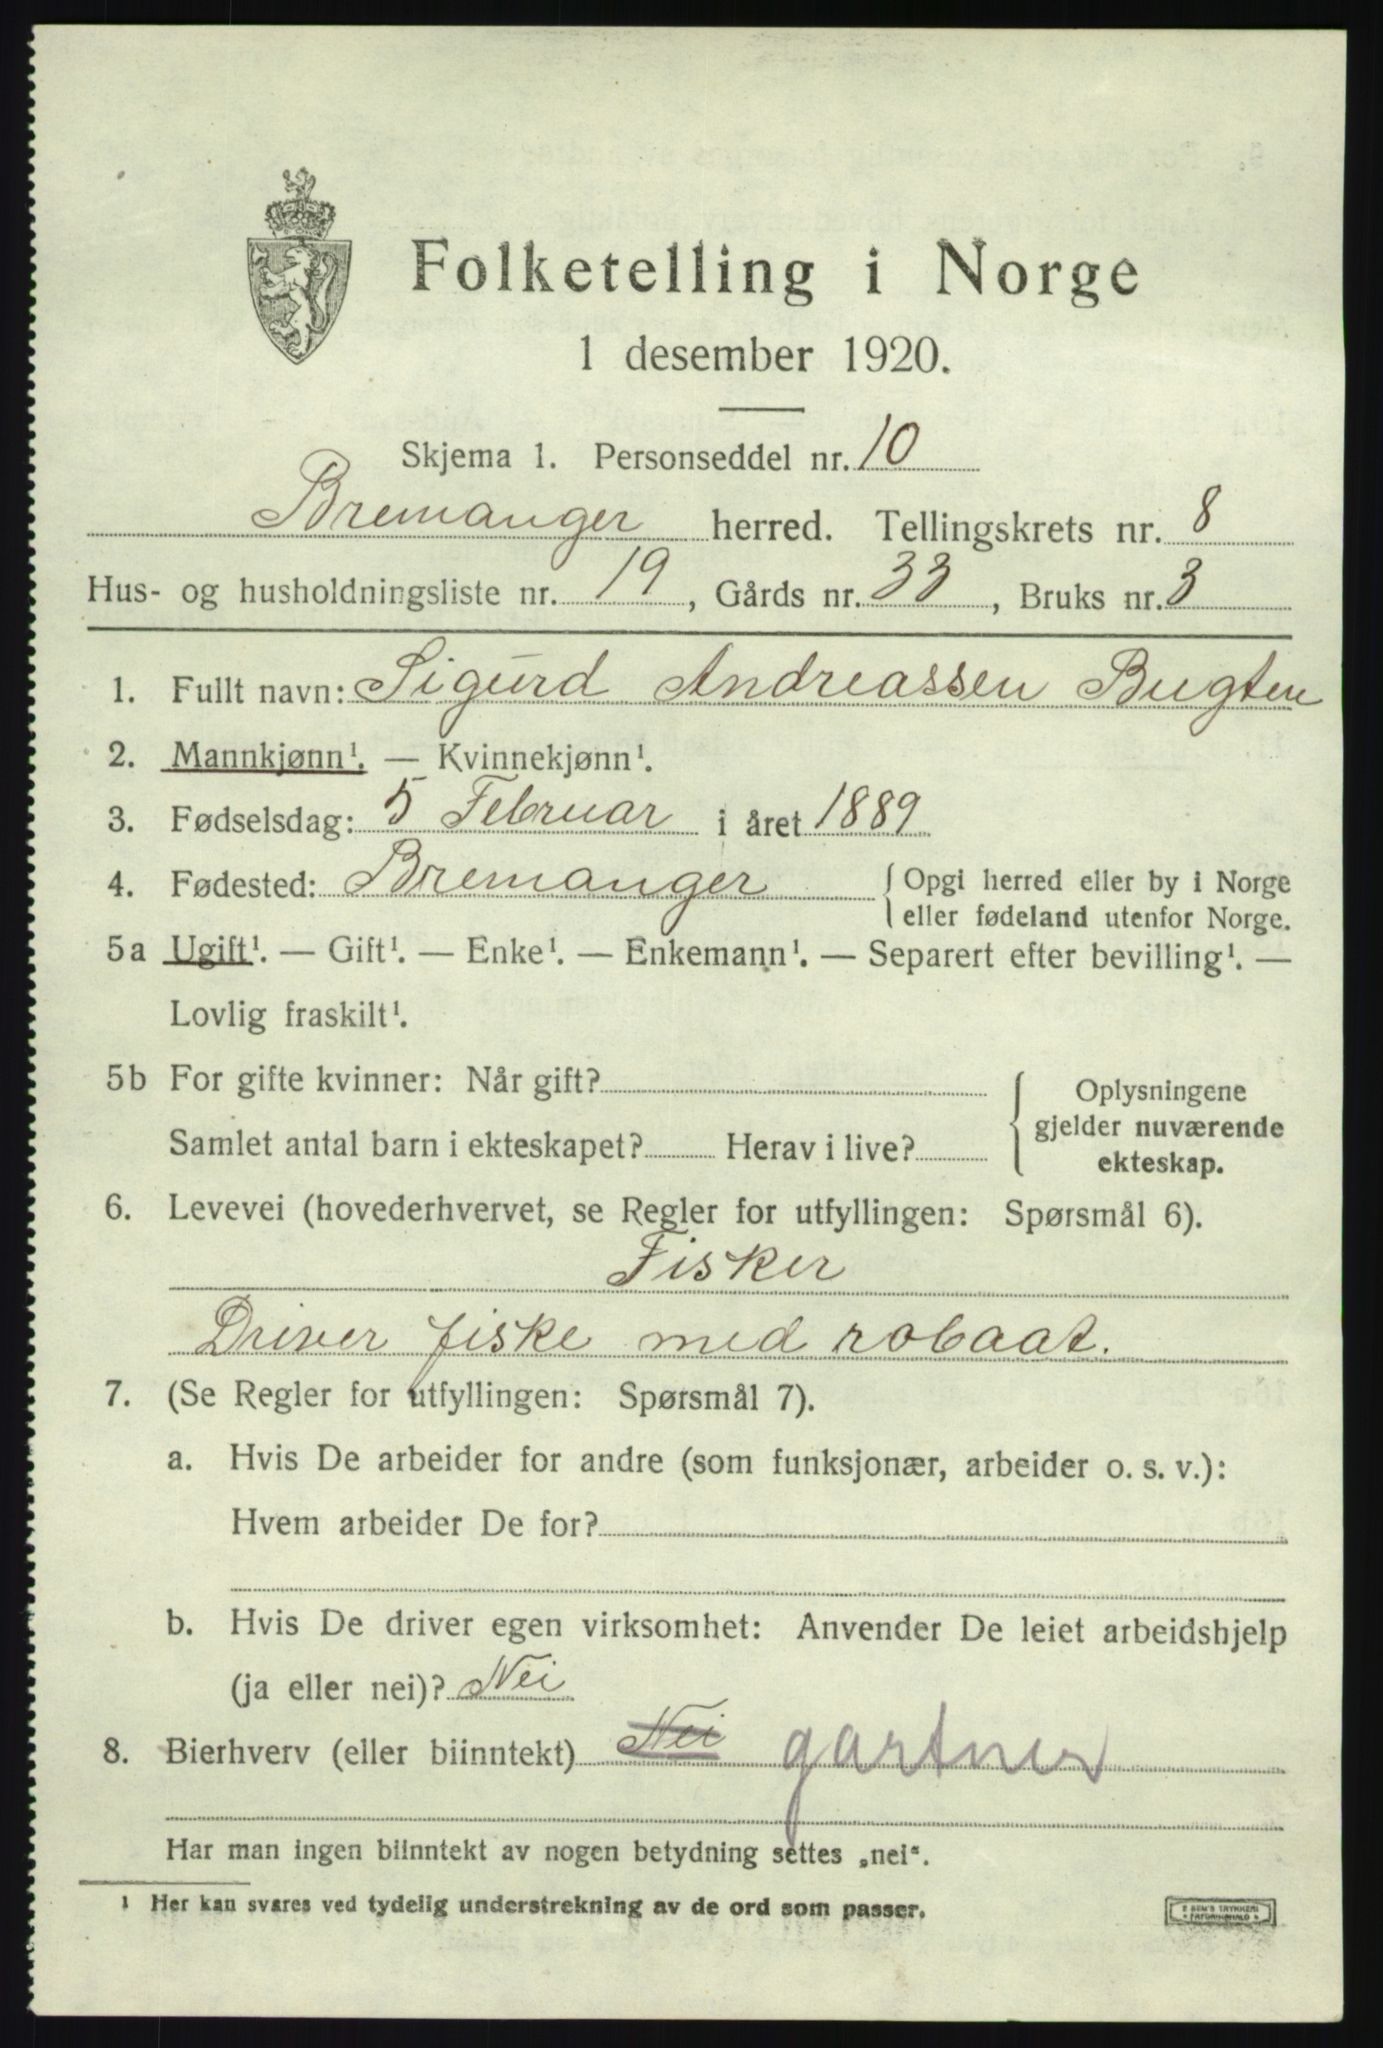 Folketelling i Norge
1 desember 1920.
Skjema 1. Personseddel nr. 10
Bremanger herred. Tellingskrets nr. 8
Hus- og husholdningsliste nr. 19, Gårds nr. 33, Bruks nr. 3
1. Fullt navn: Sigurd Andreassen Bugten
2. Mannkjønn¹. — Kvinnekjønn¹.
3. Fødselsdag: 5 Februar i året 1889
4. Fødested: Bremanger { Opgi herred eller by i Norge
eller fødeland utenfor Norge.
5a Ugift¹. — Gift¹. — Enke¹. — Enkemann¹. — Separert efter bevilling¹. —
Lovlig fraskilt¹.
5b For gifte kvinner: Når gift?
Samlet antal barn i ekteskapet? Herav i live?
Oplysningene
gjelder nuværende
ekteskap.
6. Levevei (hovederhvervet, se Regler for utfyllingen: Spørsmål 6).
Fisker
Driver fiske med robaat.
7. (Se Regler for utfyllingen: Spørsmål 7).
a. Hvis De arbeider for andre (som funksjonær, arbeider o. s. v.):
Hvem arbeider De for?
b. Hvis De driver egen virksomhet: Anvender De leiet arbeidshjelp
(ja eller nei)? Nei
8. Bierhverv (eller biinntekt) Nei gartner
Har man ingen biinntekt av nogen betydning settes „nei“.
¹ Her kan svares ved tydelig understrekning av de ord som passer.